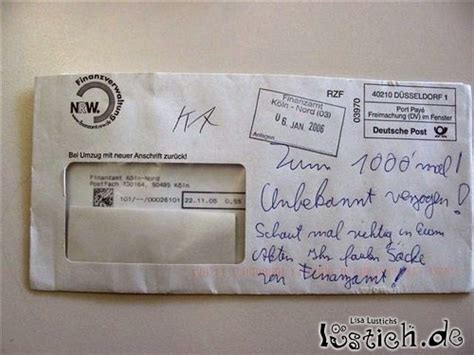 Finanzverwaltung
NRW.
RZF
40210 DÜSSELDORF 1
Port Payé
Freimachung (DV) im Fenster
Deutsche Post
03970
Finanzamt
Köln - Nord (03)
06. JAN. 2006
Anlagen
KA
Bei Umzug mit neuer Anschrift zurück!
Finanzamt Köln-Nord
Postfach 130164, 50495 Köln
22.11.05 0,55
Zum 1000 mal!
Unbekannt verzogen!
Schaut mal richtig in Eure
Akten Ihr faulen Säcke
von Finanzamt!
Lisa Lustichs
lustich.de